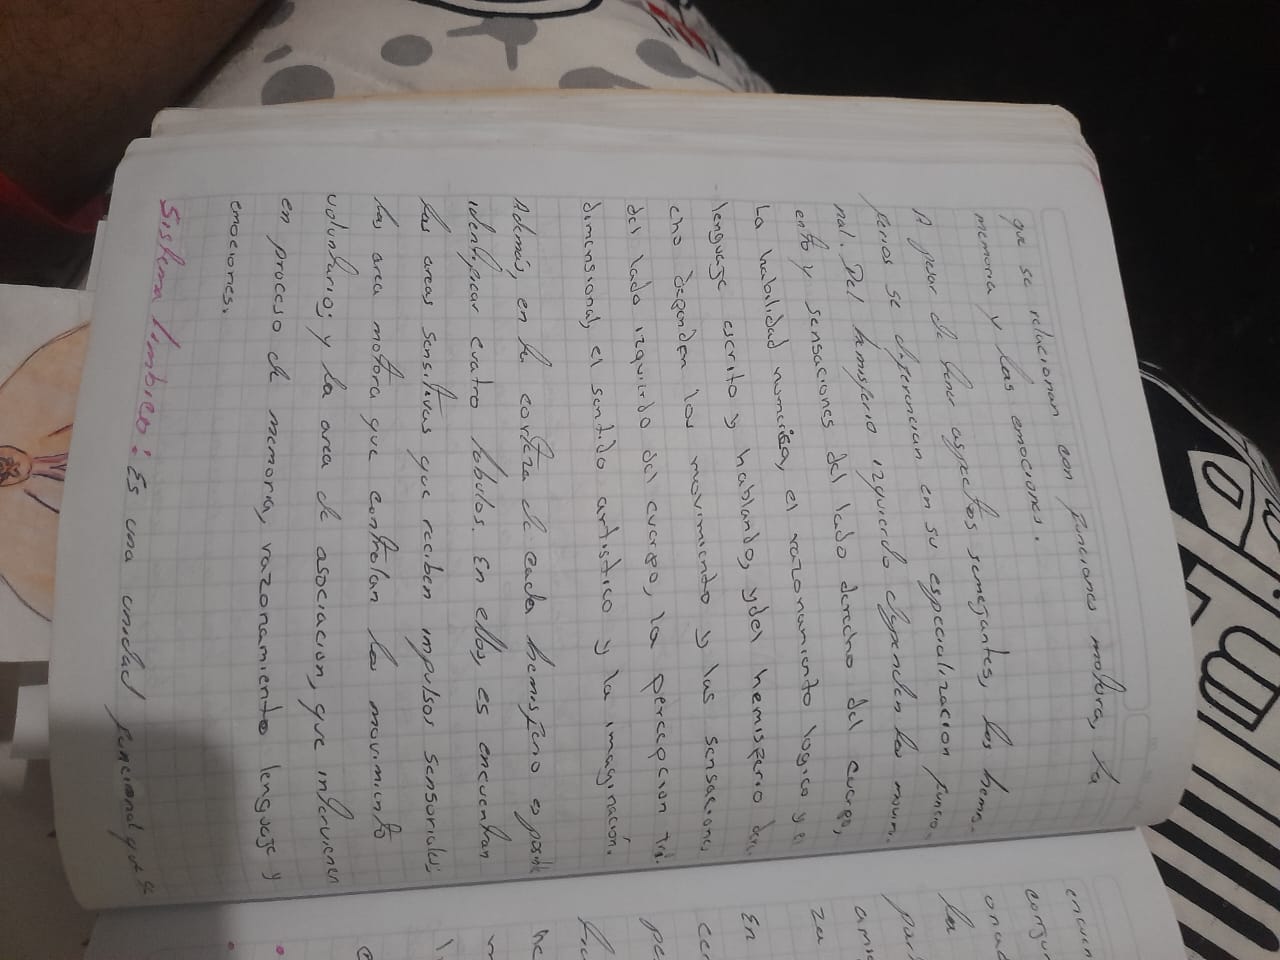 que se relacionan con funciones motora, la
memoria y las emociones.
A pesar de tener aspectos semejantes, los hems-
ferios se diferencian en su especialización funcio-
nal. Del hemisferio izquierdo dependen los movim.
ento y sensaciones del lado derecho del cuerpo,
La habilidad numérica, el razonamiento logico y el
lenguaje escrito y hablando, y del hemisferio dere
cho dependen los movimiento y las sensaciones
del lado izquierdo del cuerpo, la percepcion tri.
dimensional, el sentido artistico y la imaginación.
Además, en la corteza de cada hemisferio es posible
identificar cuatro lobulos. En ellos, es encuentran
las areas sensitivas que reciben impulsos sensoriales
las area motora que controlan los movimiento
voluntarios y la area de asociacion, que intervienen
en proceso de memoria, razonamiento lenguaje y
emociones.
Sistema limbico: Es una unidad funcional que se
encuen
conjun
onad
la
par
ami
za
En
ce
pe